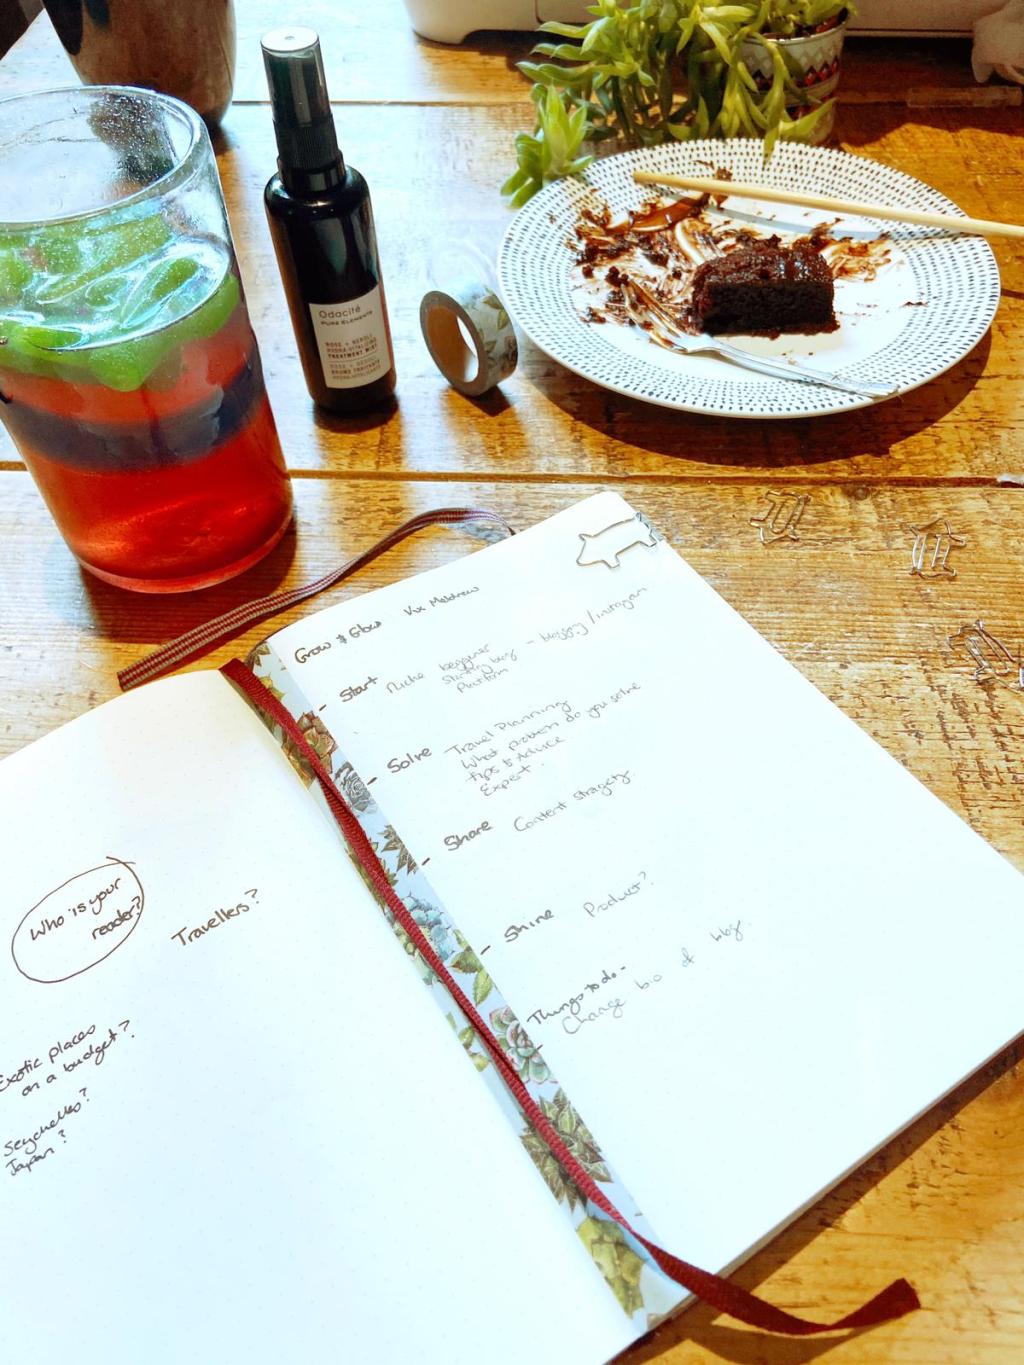 Odacité
PURE ELEMENTS
ROSE + NEROLI
HYDRA-VITALIZING
TREATMENT MIST
ROSE + NEROLI
BRUME TRAITANTE
HYDRA-VITALISANTE
Who is your
reader?
Travellers?
Exotic places
on a budget?
Seychelles?
Japan?
Grow & Glow Vix Meldrew
- Start Niche
Starting blog
Platform
- blogging/instagram
- Solve Travel Planning
What problem do you solve
tips & Advice
Expert.
- Share Content stragety.
- Shine Product?
Things to do -
- Change bio of blog.